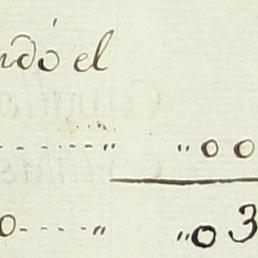 ndó el
------" "00
0----" "03